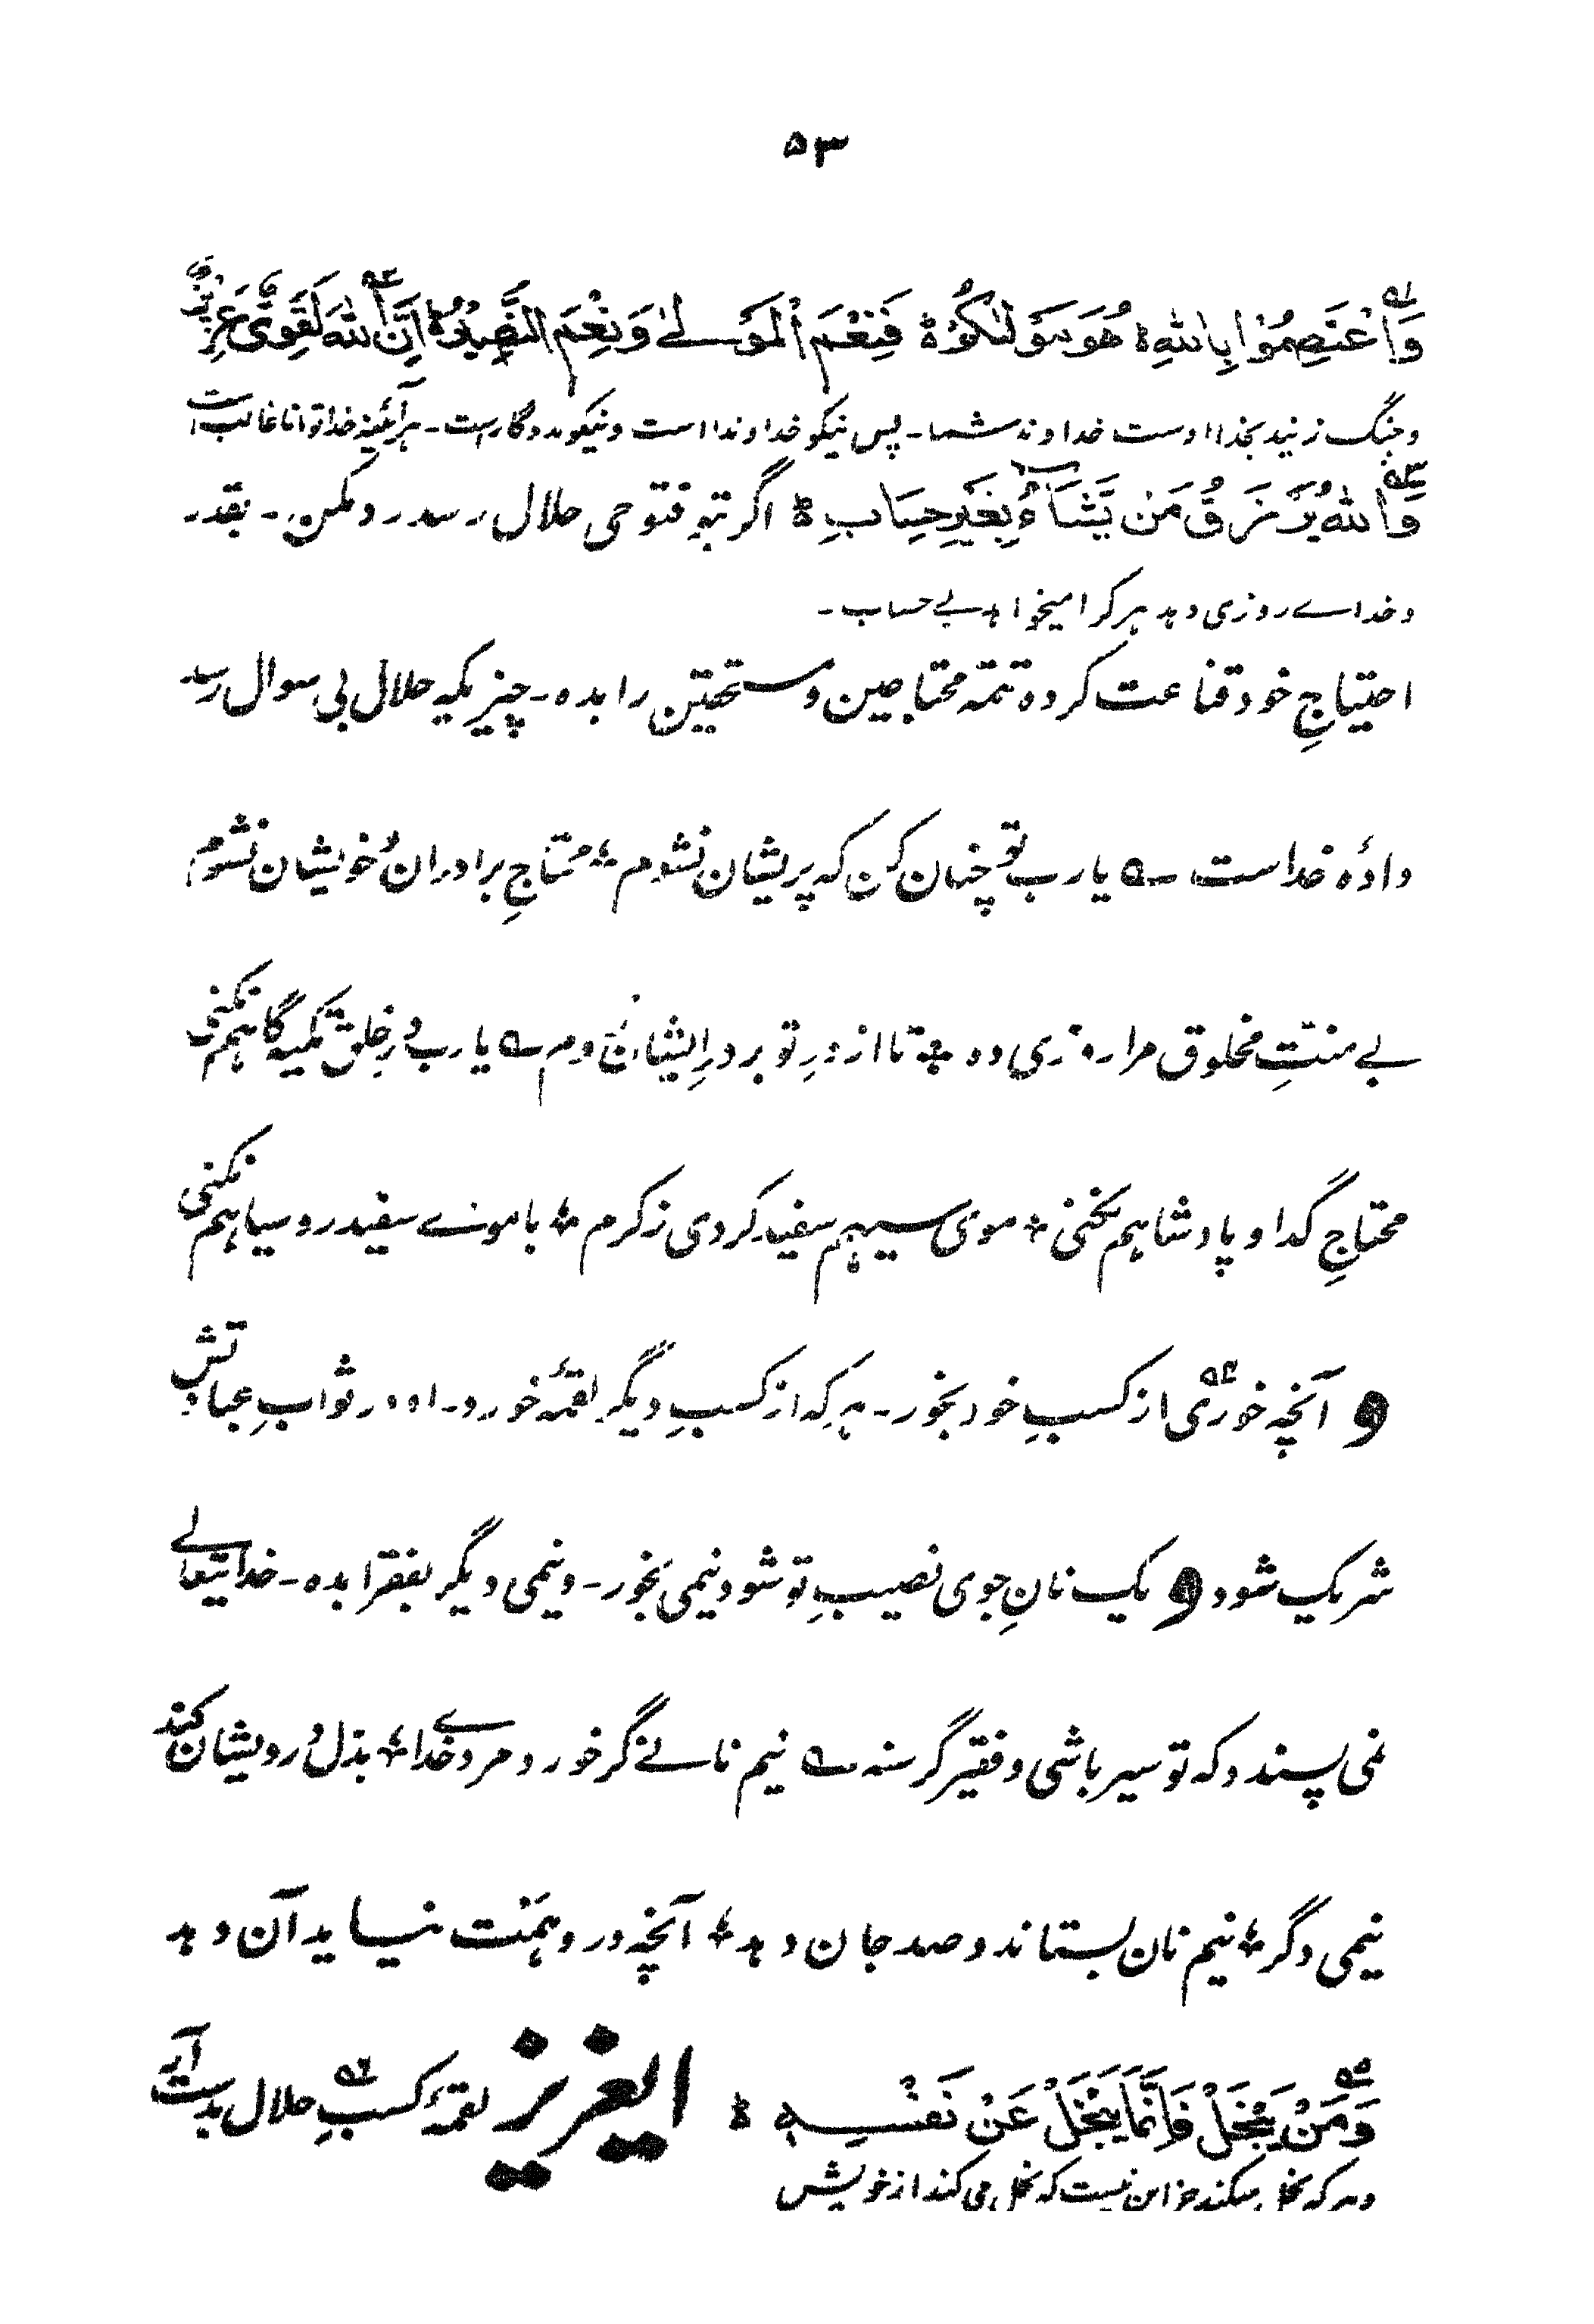 ۵۳
وَاعْتَصِمُوْا بِاللّٰهِ ؕ هُوَ مَوْلٰىكُمْ ؕ فَنِعْمَ الْمَوْلٰے وَنِعْمَ النَّصِيْرُ ؕ اِنَّ اللّٰهَ لَقَوِىٌّ عَزِيْزٌ
و چنگ زنید بخدا اوست خداوند شما۔ پس نیکو خداوندا است و نیکو مددگار است۔ ہرآئینہ خدا توانا غالب است
وَاللّٰهُ يَرْزُقُ مَنْ يَّشَآءُ بِغَيْرِ حِسَابٍ ؕ اگر بتو فتوحی حلال رسد رد مکن۔ بقدر
و خداے روزی دہد ہر کرا میخواہد بے حساب۔
احتیاجِ خود قناعت کردہ تتمہ محتاجین و مستحقین را بدہ۔ چیزیکہ حلال بی سوال رسد
دادۂ خداست ؎ یارب تو چنان کن کہ پریشان نشوم ؛ محتاجِ برادران و خویشان نشوم
بے منتِ مخلوق مرا روزی دہ ؛ تا از درِ تو بر درِ ایشان نشوم ؎ یارب درِ خلق تکیہ گاہم نکنی
محتاجِ گدا و پادشاہم نکنی ؛ موی سیہم سفید کردی ز کرم ؛ با موے سفید رو سیاہم نکنی
و آنچہ خوری از کسبِ خود بخور۔ ہر کہ از کسبِ دیگر لقمۂ خورد۔ او در ثوابِ عبادتش
شریک شود و یک نانِ جوی نصیبِ تو شود نیمی بخور۔ و نیمی دیگر بفقرا بدہ۔ خدایتعالے
نمی پسندد کہ تو سیر باشی و فقیر گرسنہ ؎ نیم نانے گر خورد مردے خدا ؛ بذل درویشان کند
نیمی دگر ؛ نیم نان بستاند و صد جان دہد ؛ آنچہ در وہمت نیاید آن دہد
وَمَنْ يَّبْخَلْ فَاِنَّمَا يَبْخَلُ عَنْ نَفْسِهٖ ؕ ایعزیز لقمۂ کسبِ حلال بدست آر
و ہر کہ بخل میکند جز این نیست کہ بخل می کند از خویش